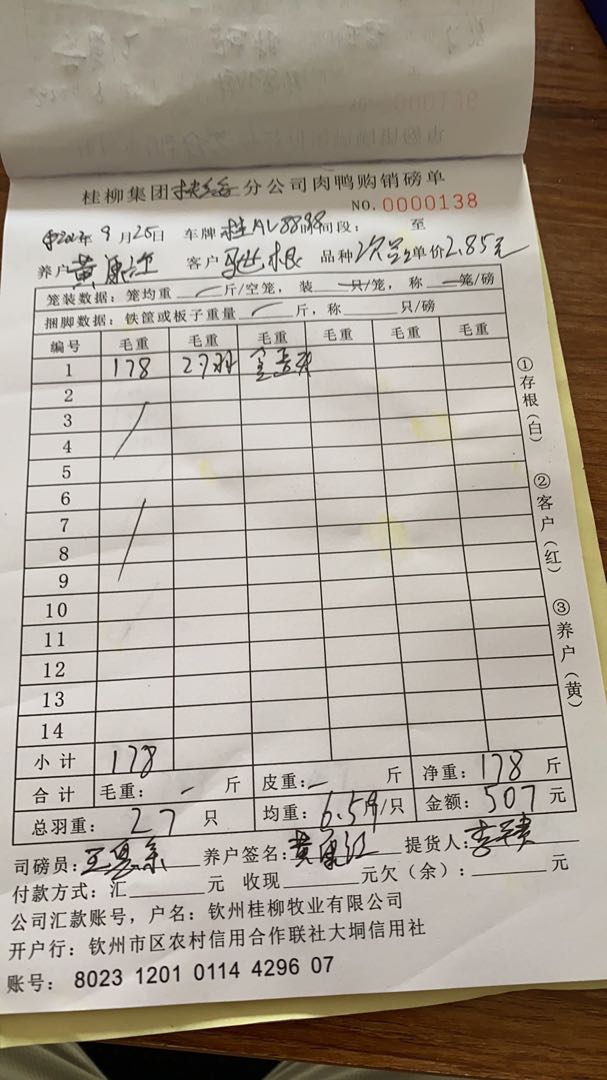 桂柳集团 分公司肉鸭购销磅单
NO. 0000138
年9月25日 车牌 桂AV8898 时间段： 至
养户 黄康江 客户 品种 次品 单价2.85元
笼装数据：笼均重 斤/空笼，装 只/笼，称 笼/磅
捆脚数据：铁筐或板子重量 斤，称 只/磅
编号 毛重 毛重 毛重 毛重 毛重 毛重
1 178 27羽
2
3
4
5
6
7
8
9
10
11
12
13
14
小计 178
合计 毛重：- 斤 皮重：- 斤 净重：178 斤
总羽重：27 只 均重：6.59/只 金额：507 元
司磅员： 养户签名：黄康江 提货人：
付款方式：汇 元 收现 元欠（余）： 元
公司汇款账号，户名：钦州桂柳牧业有限公司
开户行：钦州市区农村信用合作联社大垌信用社
账号： 8023 1201 0114 4296 07
①存根（白）
②客户（红）
③养户（黄）